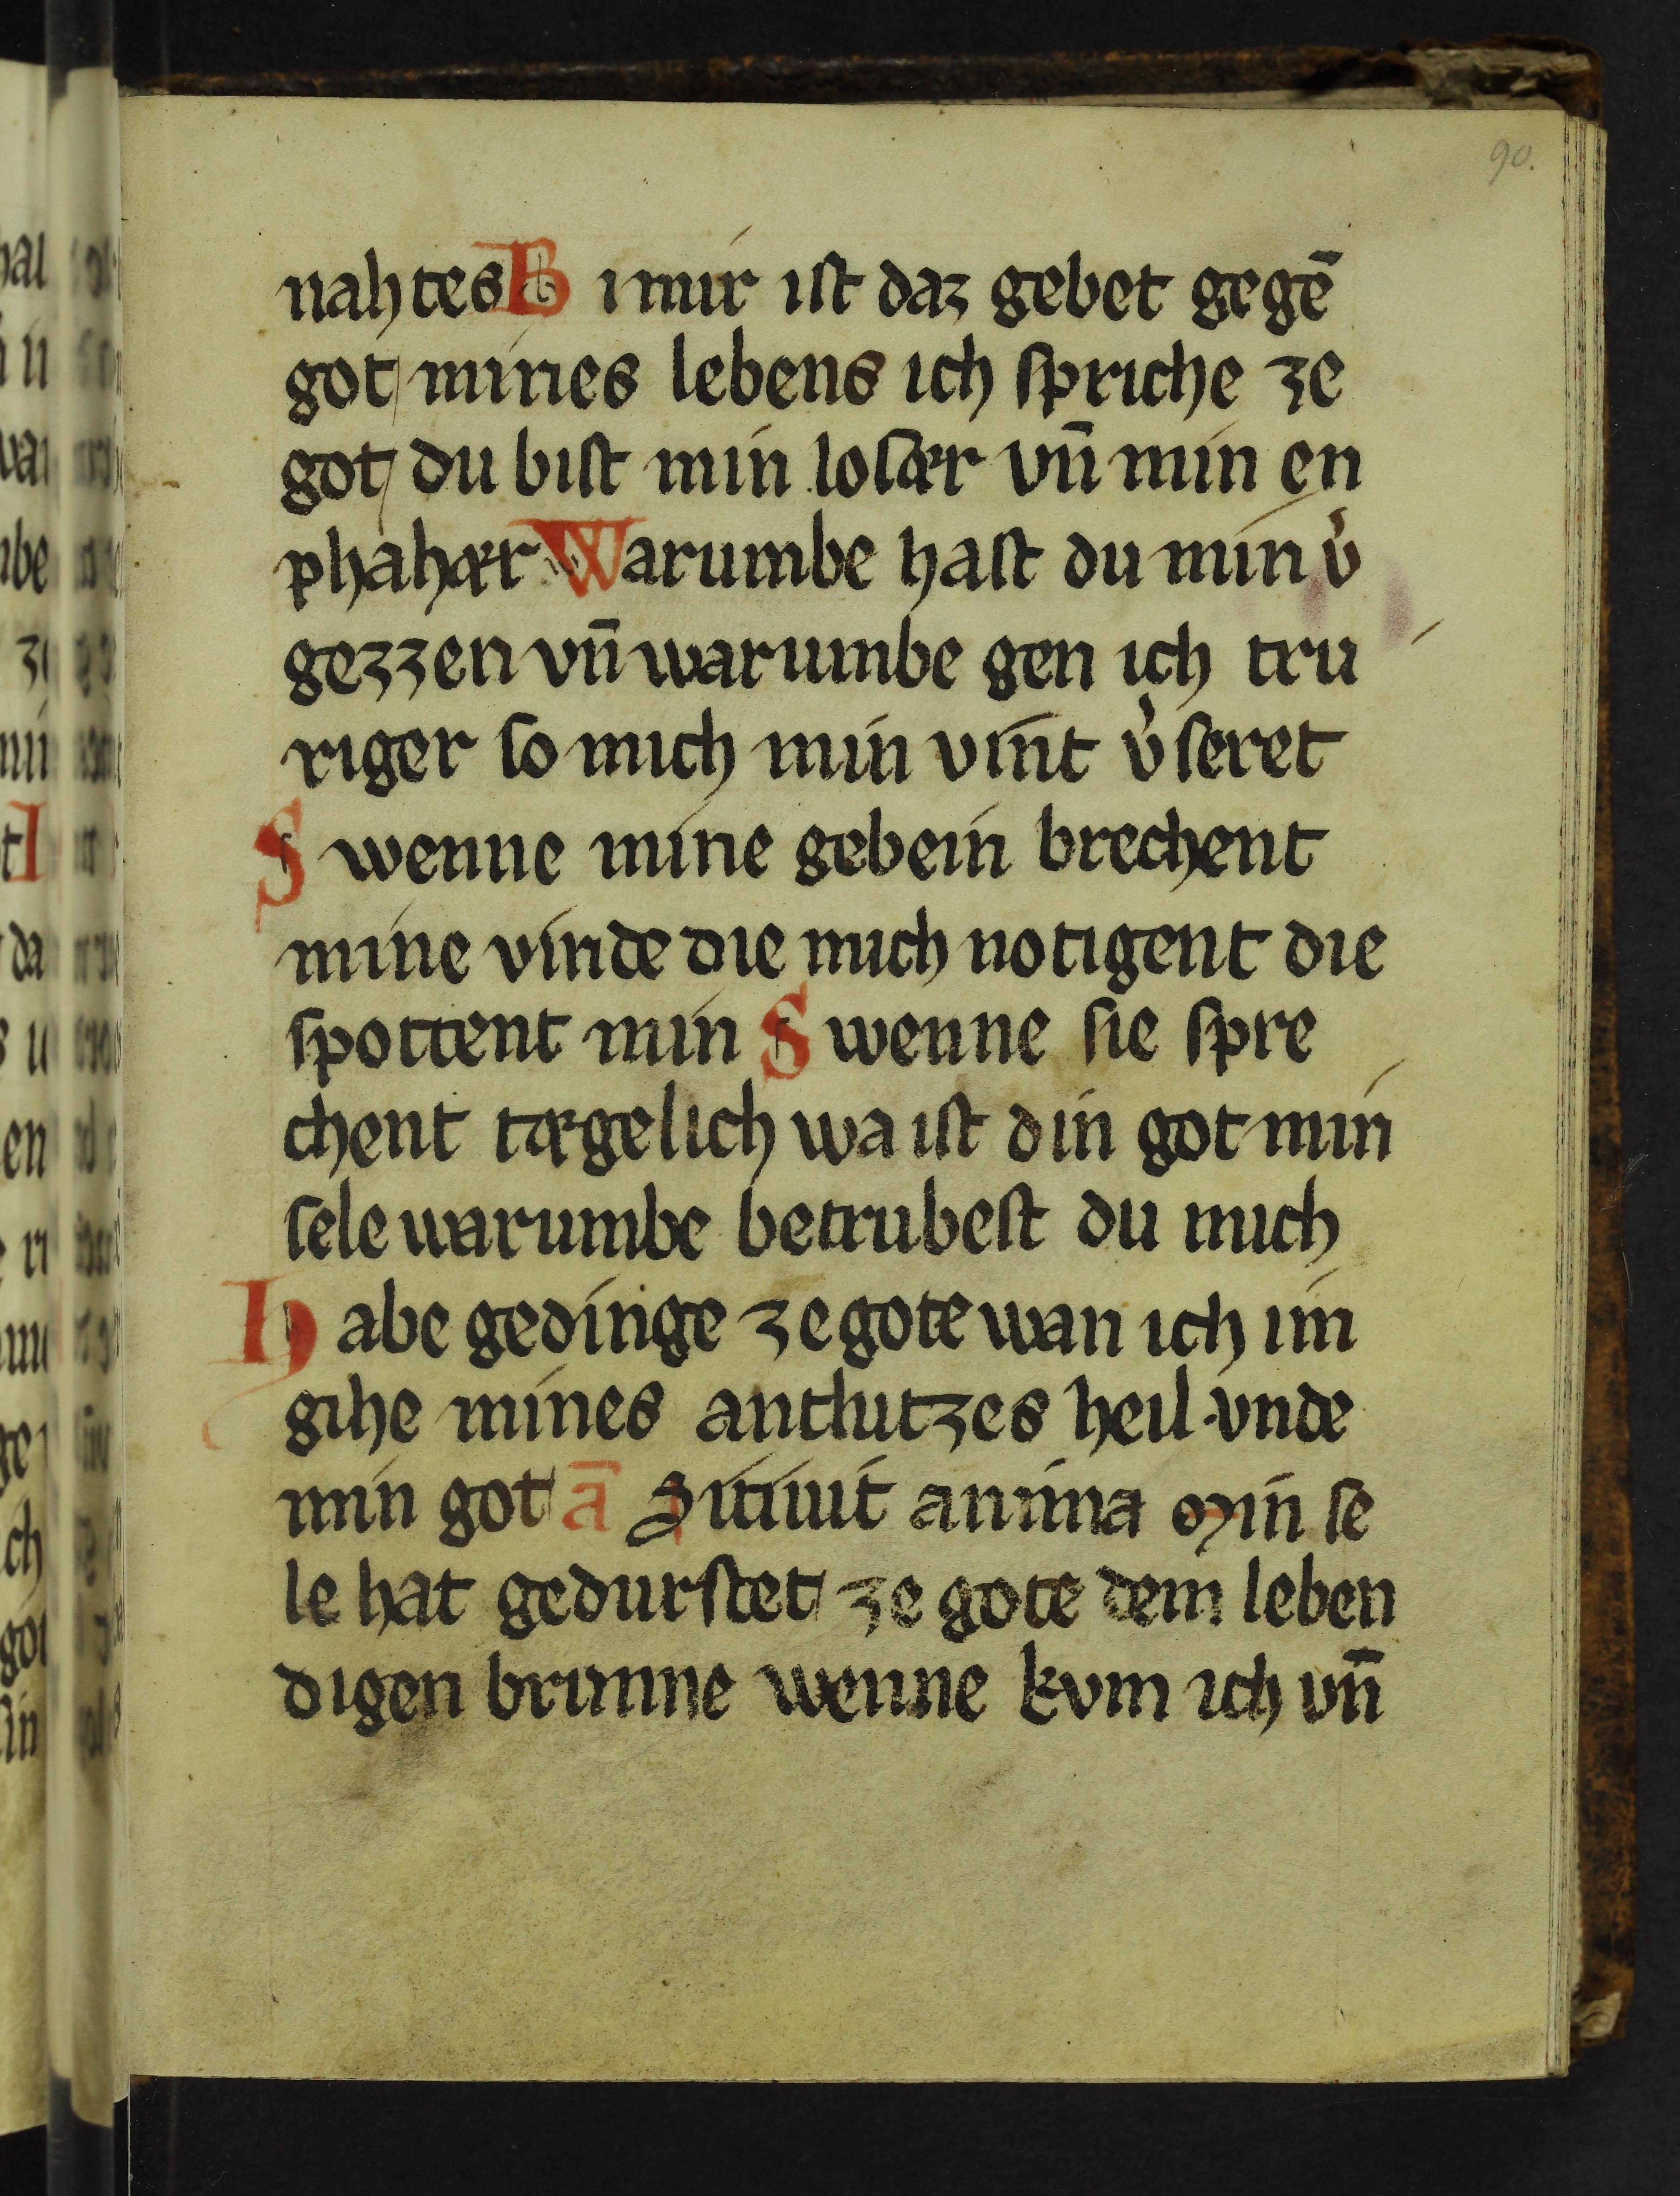 90.
nahtes B i mir iſt daz gebet gegē
got mines lebens ich ſpriche ze
got du biſt min loſær vn̄ min en
phahær Warumbe haſt du min v͛
gezzen vn̄ warumbe gen ich tru
riger ſo mich min vint v͛ſeret
S wenne mine gebein brechent
mine vinde die mich notigent die
ſpottent min S wenne ſie ſpre
chent tægelich wa iſt din got min
ſele warumbe betrubeſt du mich
H abe gedinge ze gote wan ich im
gihe mines antlutzes heil · vnde
min got ā Sitiuit anima Min ſe
le hat gedurſtet ze gote dem leben
digen brunne wenne kvm ich vn̄